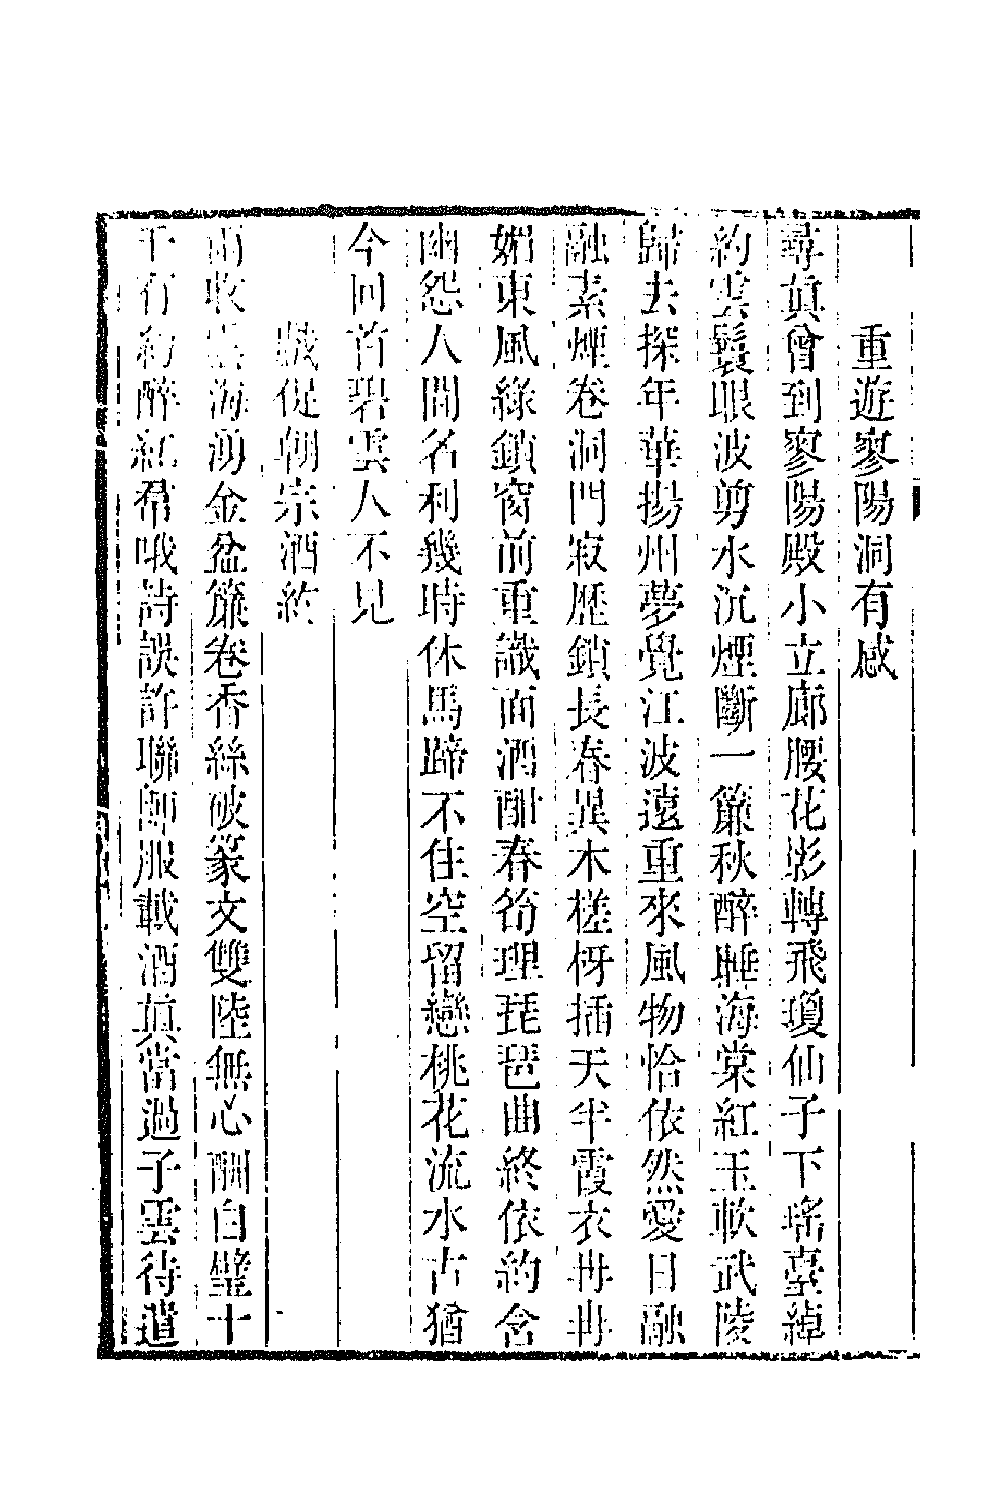 重遊寥陽洞有感
尋眞曾到寥陽殿小立廊腰花影轉飛瓊仙子下瑤臺綽
約雲鬟眼波剪水沉煙斷一簾秋醉睡海棠紅玉軟武陵
歸去探年華揚州夢覺江波遠重來風物恰依然愛日融
融素煙卷洞門寂歷鎖長春異木槎枒插天半霞衣冉冉
媚東風綠鎖窗前重識面酒酣春筍理琵琶曲終依約含
幽怨人間名利幾時休馬蹄不住空留戀桃花流水古猶
今回首碧雲人不見
戲促朝宗酒約
雨收雲海湧金盆簾卷香絲破篆文雙陸無心酬白璧十
千有約醉紅帬哦詩誤許聯師服載酒眞當過子雲待遣